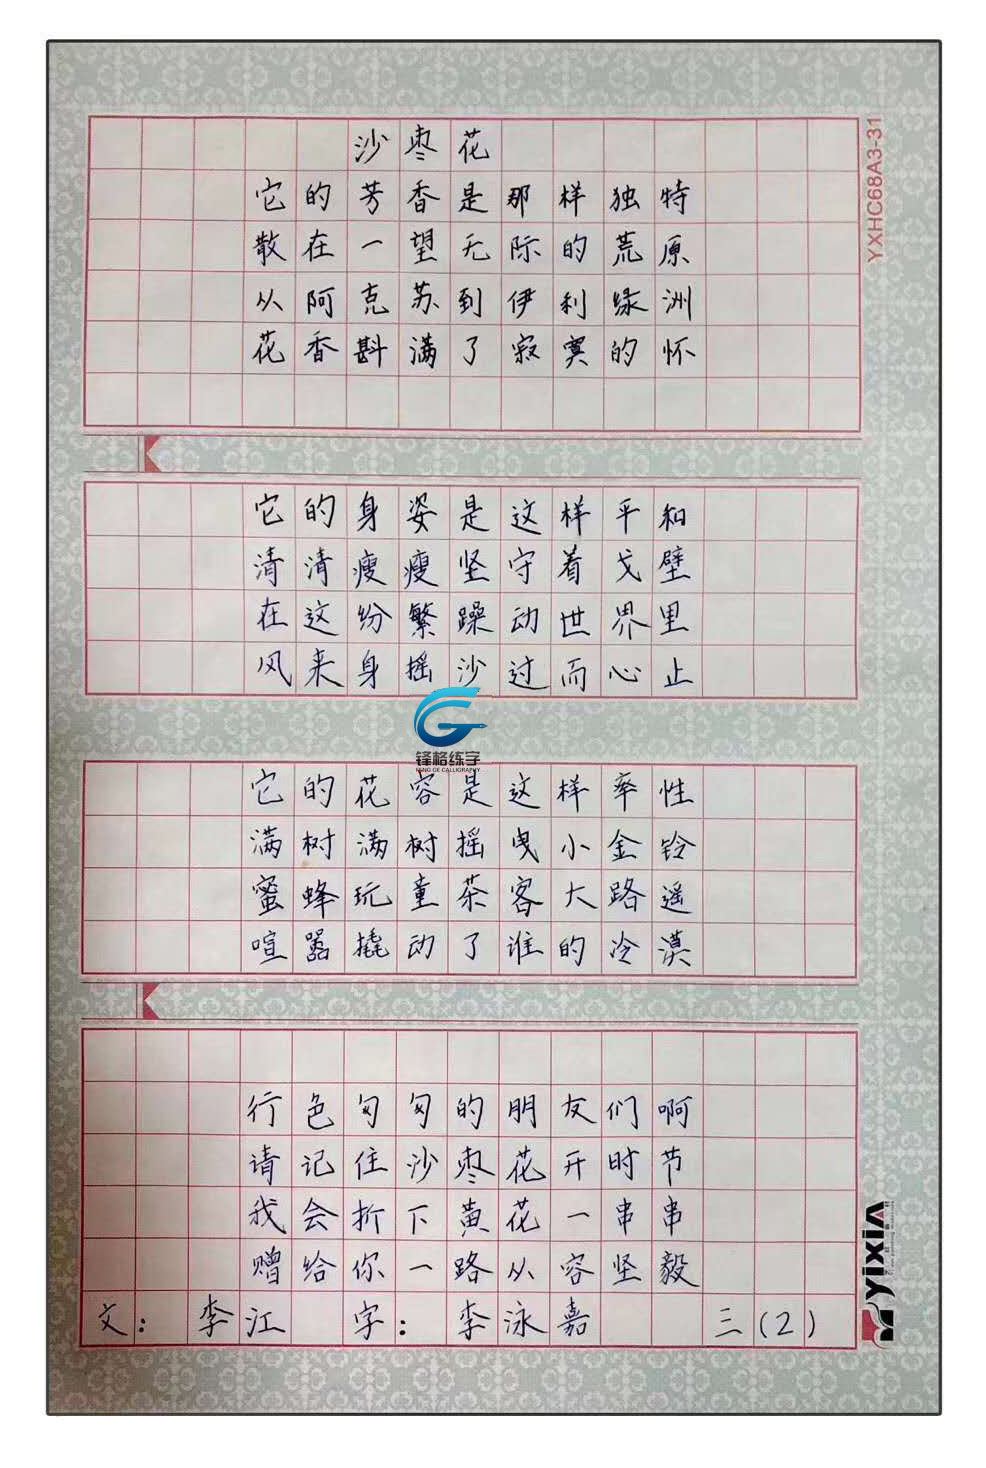 沙枣花
YXHC68A3-31
它的芳香是那样独特
散在一望无际的荒原
从阿克苏到伊利绿洲
花香斟满了寂寞的怀
它的身姿是这样平和
清清瘦瘦坚守着戈壁
在这纷繁躁动世界里
风来身摇沙过而心止
锋格练字
FENG GE CALLIGRAPHY
它的花容是这样率性
满树满树摇曳小金铃
蜜蜂玩童茶客大路遥
喧嚣撬动了谁的冷漠
行色匆匆的朋友们啊
请记住沙枣花开时节
我会折下黄花一串串
赠给你一路从容坚毅
yixin
文：李江 字：李泳嘉 三(2)